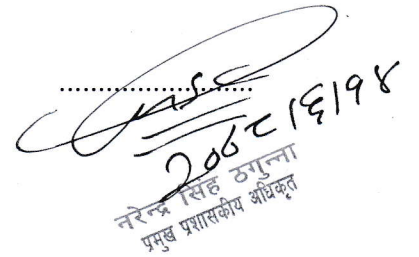 २०७८।६।१४
नरेन्द्र सिंह ठगुन्ना
प्रमुख प्रशासकीय अधिकृत